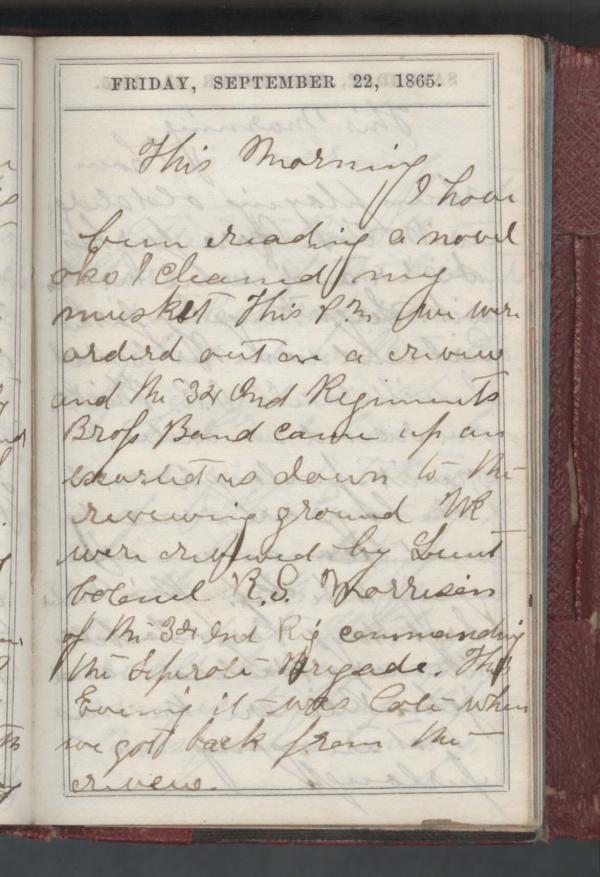 FRIDAY, SEPTEMBER 22, 1865.
This Morning
I have
been reading a novel
also I cleaned my
musket This P.M. we were
orderd out on a review
and the 32 Ind Regiments
Brass Band came up an
escorted us down to the
reviewing ground We
were reviewed by Lieut
Colonel R.S. Morrison
of the 32 Ind Reg commanding
the Seperate Brigade. This
Evening it was late when
we got back from the
review.